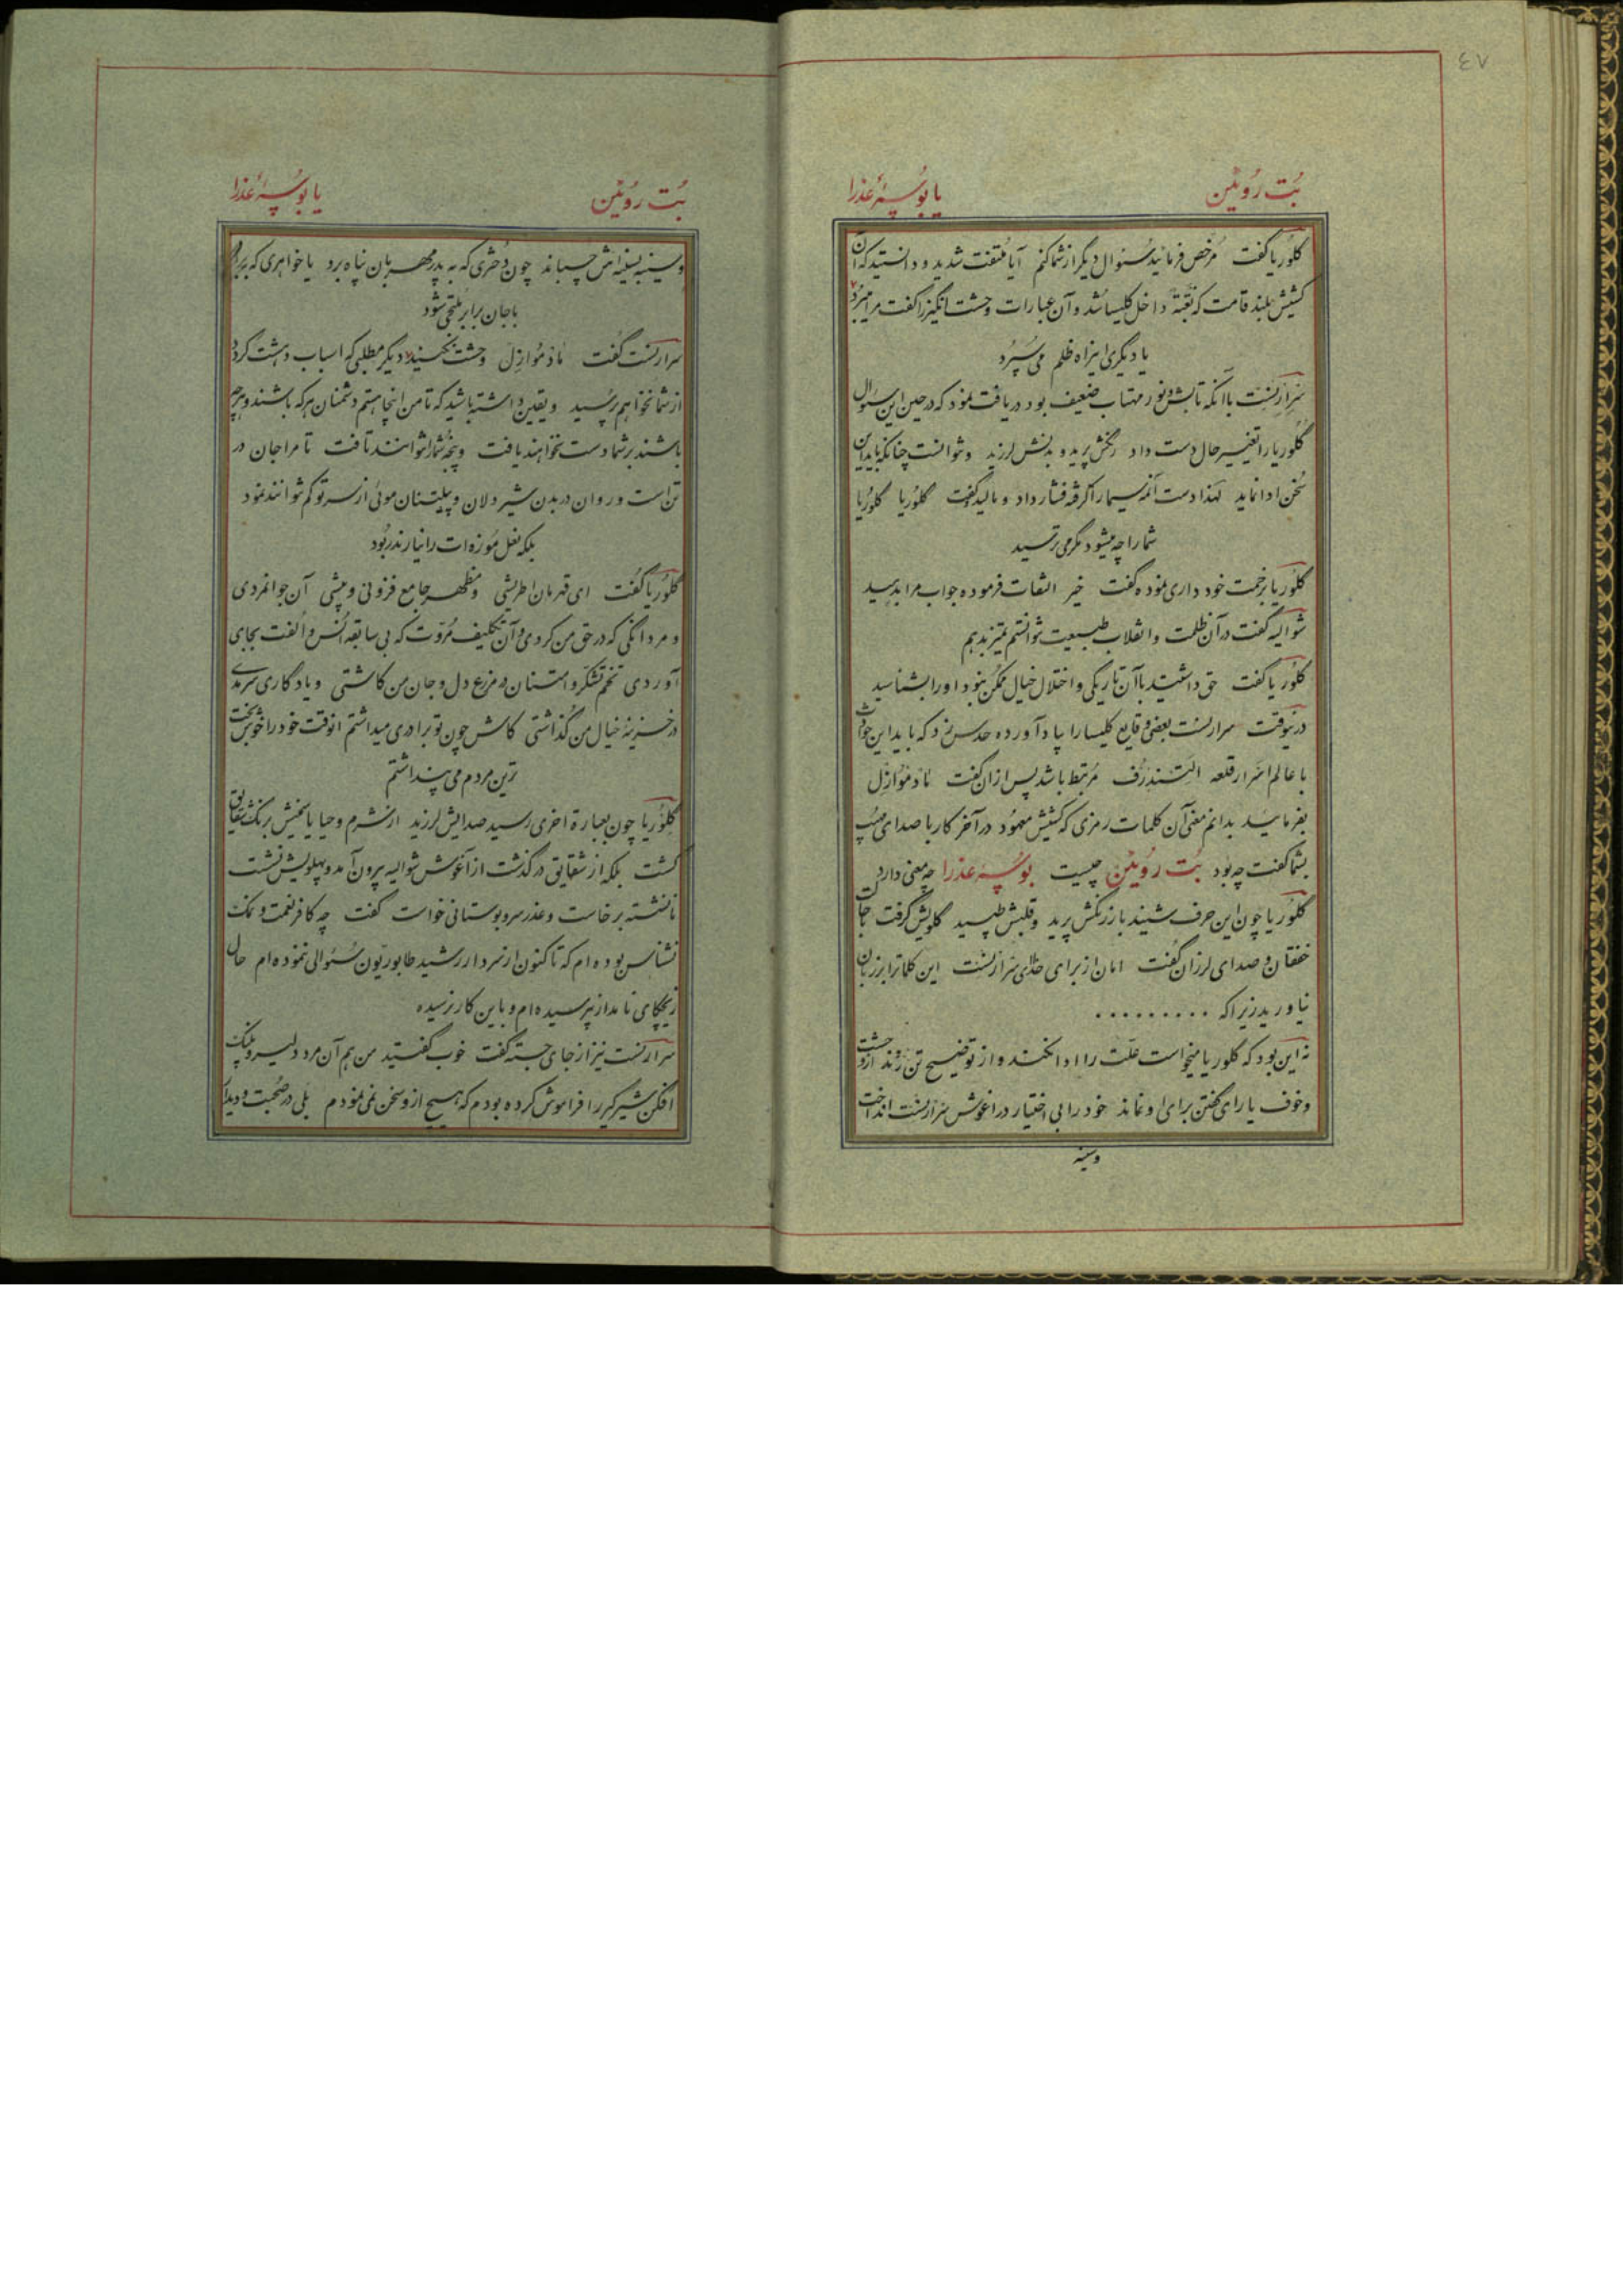 ٤٧
بُت رُویَٔین یا بُوسُهٔ عَذرا
کلُوریا گفت مُرخّص فرمائید سُئوال دیگر از شما کنم آیا مُلتفت شدید و دانستید که آن
کشیش بلند قامت که بَغتةً داخل کلیسا شد و آن عبارات وحشت انگیز را گفت مرا میبرُد
یا دیگری اینراه ظلم می سپُرد
سِرارنِسْت با آنکه تابش نور مهتاب ضعیف بود دریافت نمود که در حین این سئوال
کلوریا را تغییر حال دست داد رنگش پرید و بدنش لرزید و نتوانست چنانکه باید این
سُخن ادا نماید لهذا دست آنمه سیما را گرفته فشار داد و مالید گفت کلوُریا کلوُریا
شما را چه میشود مگر می ترسید
کلوُریا بزحمت خود داری نموده گفت خیر التفات فرموده جواب مرا بدهید
شوالیه گفت در آن ظلمت و انقلاب طبیعت نتوانستم تمیز بدهم
کلوُریا گفت حق داشتید با آن تاریکی و اختلال خیال ممکن نبود او را بشناسید
درینوقت سرارنست بعضی وقایع کلیسا را بیاد آورده حدس زد که باید این حوادث
با عالم اسرار قلعه آلتَندرُف مُرتبط باشد پس از آن گفت مادمُوازِل
بفرمائید بدانم معنی آن کلمات رمزی که کشیش معهُود در آخر کار با صدای مهیب
بشما گفت چه بود بُت رُویَٔین چیست بُوسُهٔ عذرا چه معنی دارد
کلوُریا چون این حرف شنید باز رنگش پرید و قلبش طپید گلویش گرفت بحالت
خفقان و صدای لرزان گفت امان از برای خدا ای سرارنست این کلماترا بر زبان
نیاورید زیرا که . . . . . . . . .
نه این بود که کلوریا میخواست علّت را ادا نکند و از توضیح تن زند از وحشت
و خوف یارای گفتن برای او نماند خود را بی اختیار در آغوش سرارنست انداخت
و سینه
بُت رُویَٔین یا بُوسُهٔ عَذرا
و سینه بسینه اش چسباند چون دختری که به پدر مهربان پناه برد یا خواهری که ببرادر
با جان برابر ملتجی شود
سرارنست گفت مادمُوازِل وحشت نکنید دیگر مطلبی که اسباب دهشت گردد
از شما نخواهم پرسید و یقین داشته باشید که تا من اینجا هستم دشمنان هر که باشند و هر چه
باشند بر شما دست نخواهند یافت و پنجهٔ شما را نتوانند تافت تا مرا جان در
تن است و روان در بدن شیر دلان و پیلتنان موئی از سر تو کم نتوانند نمود
بلکه نعل مُوزه ات را نیارند ربُود
کلوُریا گفت ای قهرمان اطریشی و مظهر جامع فزونی و بیشی آن جوانمردی
و مردانگی که در حق من کردی و آن تکلیف مُروّت که بی سابقه اُنس و اُلفت بجای
آوردی تخم تشکّر و امتنان در مزرع دل و جان من کاشتی و یادگاری سرمدی
در خزینهٔ خیال من گذاشتی کاش چون تو برادری میداشتم آنوقت خود را خوشبخت
ترین مردم می پنداشتم
کلوُریا چون بعبارة اخری رسید صدایش لرزید از شرم و حیا یا سخنش برنگ شقایق
گشت بلکه از شقایق در گذشت از آغوش شوالیه بیرون آمد و پهلویش نشست
نانشسته برخاست و عذر سرو بوستانی خواست گفت چه کافر نعمت و نمک
نشناس بوده ام که تا کنون از سردار رشید طابوریّون سُئوالی ننموده ام حال
زیچکای نامدار نپرسیده ام و باین کار نرسیده
سرارنست نیز از جای جسته گفت خوب گفتید من هم آن مرد دلیر و پلنگ
افکن شیرگیر را فراموش کرده بودم که هیچ از و سخن نمی نمودم بلی در صُحبت و دیدار